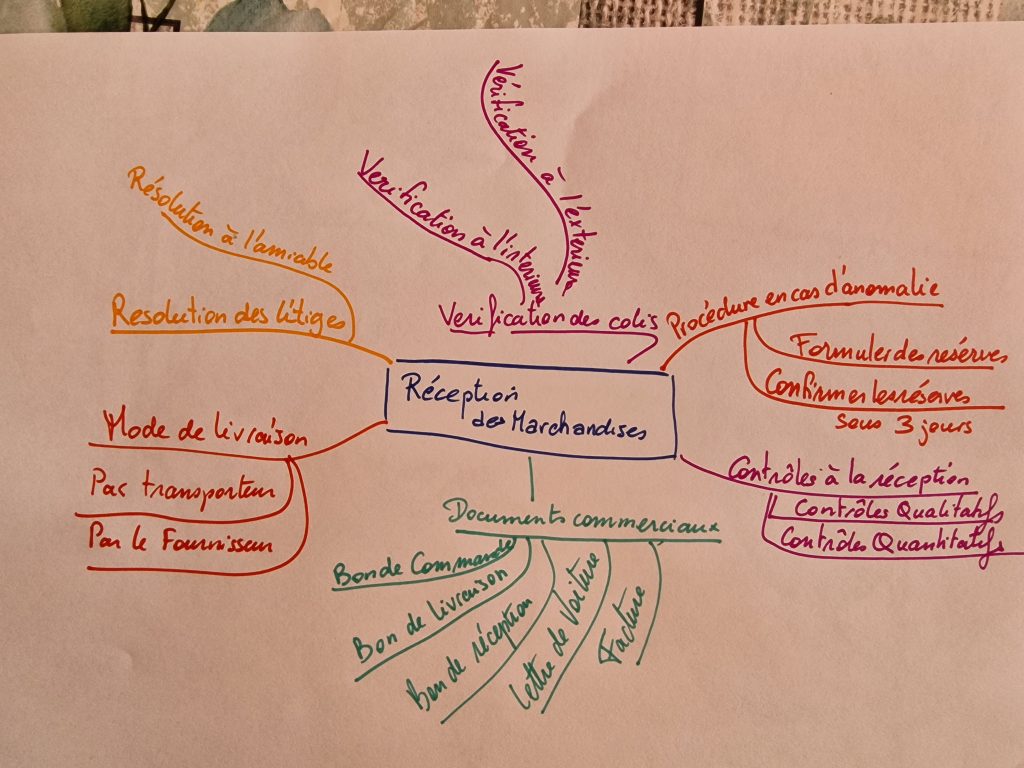 Vérification à l'exterieur
Verification à l'interieure
Résolution à l'amiable
Resolution des litiges
Verification des colis
Procédure en cas d'anomalie
Formuler des resérves
Confirmer les réserves
sous 3 jours
Réception
des Marchandises
Mode de livraison
Par transporteur
Par le Fournisseur
Contrôles à la réception
Contrôles Qualitatifs
Contrôles Quantitatifs
Documents commerciaux
Bon de Commande
Bon de livraison
Bon de réception
Lettre de Voiture
Facture